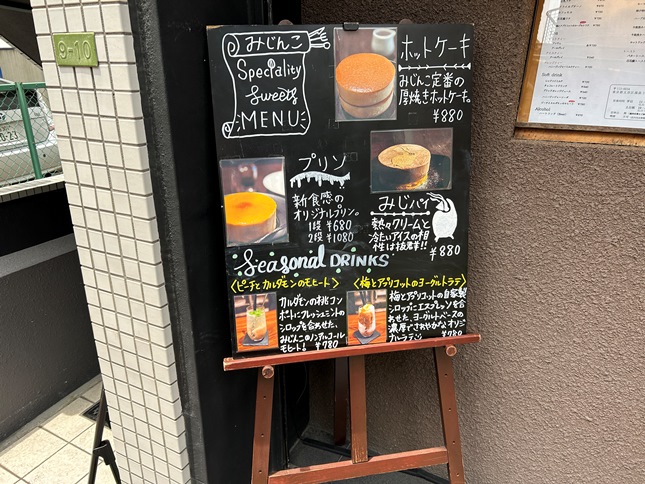 9-10
みじんこ
Speciality
Sweets
MENU
ホットケーキ
みじんこ定番の
厚焼きホットケーキ。
¥880
プリン
新食感の
オリジナルプリン。
1段 ¥680
2段 ¥1080
みじパイ
熱々クリームと
冷たいアイスの相
性は抜群!!
¥880
Seasonal DRINKS
〈ピーチとカルダモンのモヒート〉
カルダモンの桃コン
ポートにフレッシュミントの
シロップを合わせた、
みじんこのノンアルコール
モヒート! ¥780
〈梅とアプリコットのヨーグルトラテ〉
梅とアプリコットの自家製
シロップにエスプレッソを合
わせた、ヨーグルトベースの
濃厚でさわやかなオリジ
ナルラテ。 ¥780
Soft drink
Alcohol